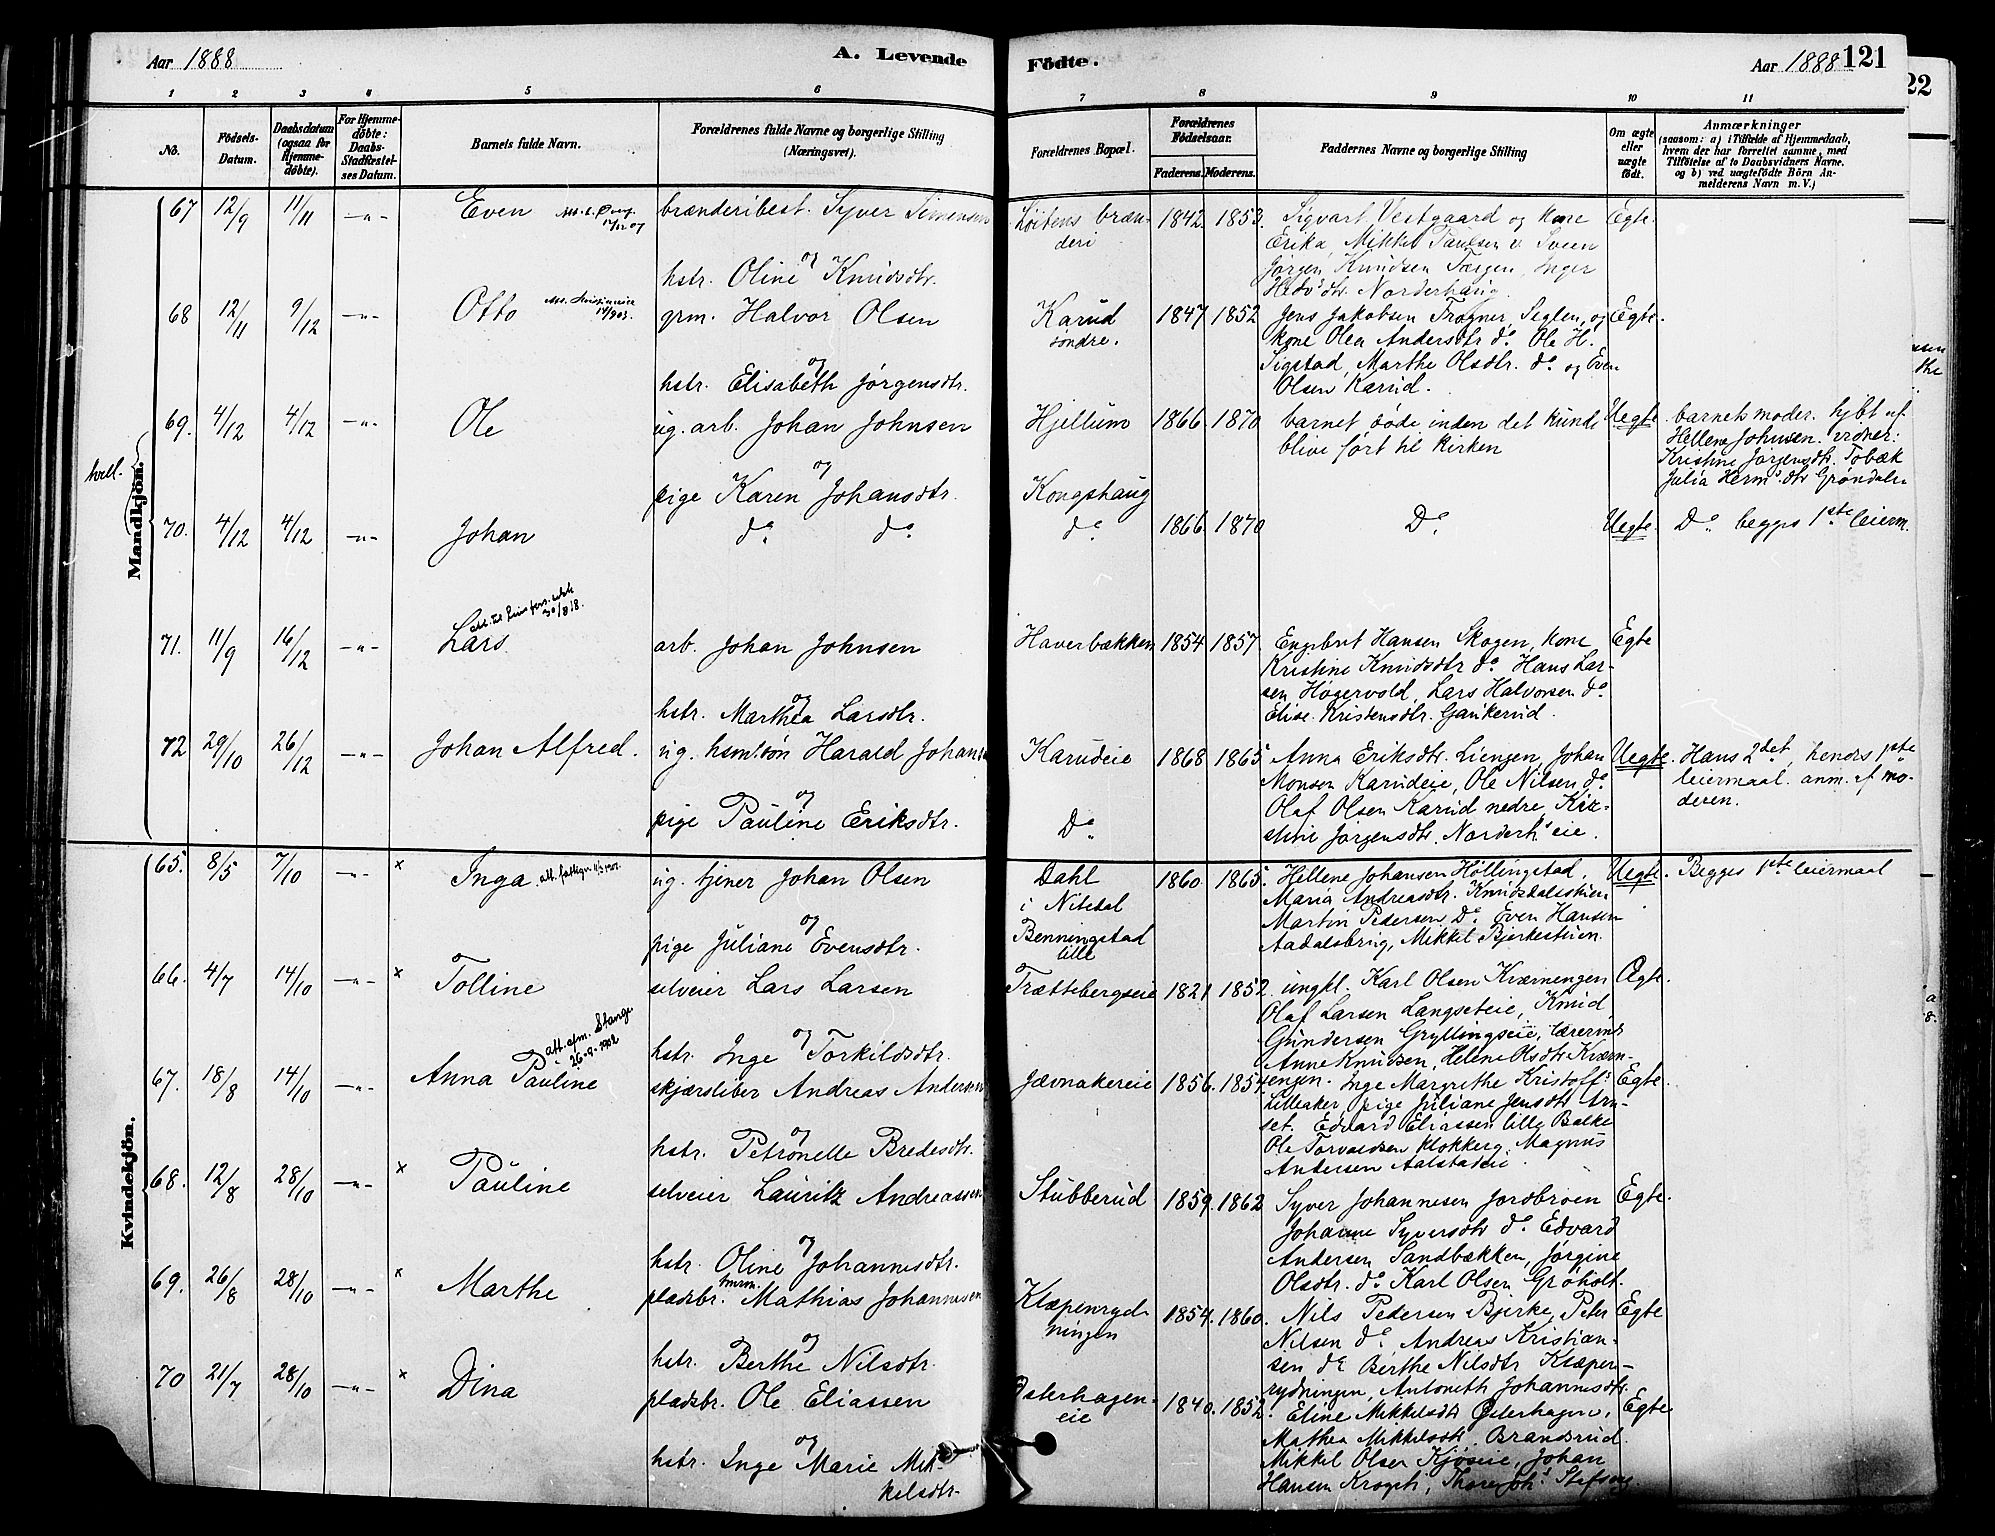 Aar 1888
A. Levende
Fødte.
Aar 1888
121
22
1 2 3 4 5 6 7 8 9 10 11
No.
Fødsels-
Datum.
Daabsdatum
(ogsaa for
Hjemme-
døbte).
For Hjemme-
døbte:
Daabs-
Stadfæstel-
ses Datum.
Barnets fulde Navn.
Forældrenes fulde Navne og borgerlige Stilling
(Næringsvei).
Forældrenes Bopæl.
Forældrenes
Fødselsaar.
Faderens. Moderens.
Faddernes Navne og borgerlige Stilling
Om ægte
eller
uægte
født.
Anmærkninger
(saasom: a) i Tilfælde af Hjemmedaab,
hvem der har forrettet samme, med
Tilføielse af to Daabsvidners Navne.
og b) ved uægtefødte Børn An-
melderens Navn m. V.)
Mandkjön.
67 12/9 11/11 -"- Even
brænderibest. Syver Simensen
og
hstr. Oline Knudsdtr.
Løitens bræn-
deri
1842 1853.
Sigvart Vestgaard og kone
Erika, Mikkel Paulsen v. Sveen
Jørgen Knudsen Tørgen, Inger
Hedv. dtr. Norderhaug.
Egte.
68 12/11 9/12 -"- Otto
grm. Halvor Olsen
og
hstr. Elisabeth Jørgensdtr.
Karud
søndre.
1847 1852
Jens Jakobsen Trøgner, Seglen, og
kone Olea Andersdtr do. Ole H.
Sigstad, Marthe Olsdtr. do og Even
Olsen Karud.
Egte.
69. 4/12 4/12 -"- Ole
ug. arb. Johan Johnsen
og
pige Karen Johansdtr.
Hjellum
Kongshaug
1866 1870
barnet døde inden det kunde
blive ført til kirken
Uegte.
barnets moder. hjbt af
Hellene Johnsen. vidner:
Kristine Jørgensdtr. Tobæk
Julia Herm. dtr Grøndalen
70. 4/12 4/12 -"- Johan
do do
do
1866 1870
Do
Uegte.
Do. begges 1ste leierm.
71. 11/9 16/12 -"- Lars.
arb. Johan Johnsen
og
hstr. Marthea Larsdtr.
Haverbækken
1854 1857.
Engebret Hansen Skogen, kone
Kristine Knudsdtr do. Hans Lar-
sen Høgervold, Lars Halvorsen do
Elise Kristensdtr. Gaukerud.
Egte
72 29/10 26/12 -"- Johan Alfred.
ug. hsmdsøn Harald Johans
og
pige Pauline Eriksdtr.
Karudeie
Do
1868 1865
Anna Eriksdtr. Liengen, Johan
Monsen Karudeie, Ole Nilsen do
Olaf Olsen Karud nedre, Kri-
stine Jørgensdtr. Norderh. eie.
Uegte.
Hans 2det, hendes 1ste
leiermaal. anm. af mo-
deren.
Kvindekjön.
65. 8/5 7/10 -"- × Inga.
ug. tjener Johan Olsen
og
pige Juliane Evensdtr.
Dahl
i Nitedal
Benningstad
lille
1860 1865.
Hellene Johansen Høllingstad,
Maria Andreasdtr. Knudsdalsstuen
Martin Pedersen Do. Even Hansen
Aadalsbrug, Mikkel Bjerkestuen.
Uegte.
Begges 1ste leiermaal
66. 4/7 14/10 -"- × Tolline
selveier Lars Larsen
og
hstr. Inge Torkildsdtr.
Trættebergseie
1821 1852.
ungkl. Karl Olsen Kværnengen
Olaf Larsen Langseteie, Knud
Gundersen Gryllingseie, lærerinde
Anne Knudsen, Helene Olsdtr Kværn-
engen.
Ægte.
67. 18/8 14/10 -"- Anna Pauline
att. afm. Stange
26-9-1902
skjærsliber Andreas Andersen
og
hstr. Petronelle Bredesdtr.
Jævnakereie
1856. 1854.
Inge Margrethe Kristoff.
Lilleaker, pige Juliane Jensdtr Arn-
set. Edvard Eliassen lille Balke
Ole Torvaldsen Klokkerg. Magnus
Andersen Aalstadeie.
Egte.
68. 12/8 28/10 -"- × Pauline
selveier Lauritz Andreassen
og
hstr. Oline Johannesdtr.
Stubberud
1859. 1862
Syver Johannesen Jordbroen
Johanne Syversdtr do. Edvard
Andersen Sandbækken, Jørgine
Olsdtr. do Karl Olsen Grøholt.
Egte.
69. 26/8 28/10 -"- × Marthe
tmrm.
pladsbr. Mathias Johannesen
og
hstr. Berthe Nilsdtr.
Klæpenryd-
ningen
1854. 1860.
Nils Pedersen Bjerke, Peter
Nilsen do. Andreas Kristian-
sen do Berthe Nilsdtr Klæpen-
rydningen, Antoneth Johannesdtr.
Egte
70 21/7 28/10 -"- × Dina
pladsbr. Ole Eliassen
og
hstr. Inge Marie Mik-
kelsdtr.
Østerhagen-
eie
1840. 1852.
Eline Mikkelsdtr Østerhagen,
Mathea Mikkelsdtr. Brandsrud.
Mikkel Olsen Kjøseie, Johan
Hansen
Egte